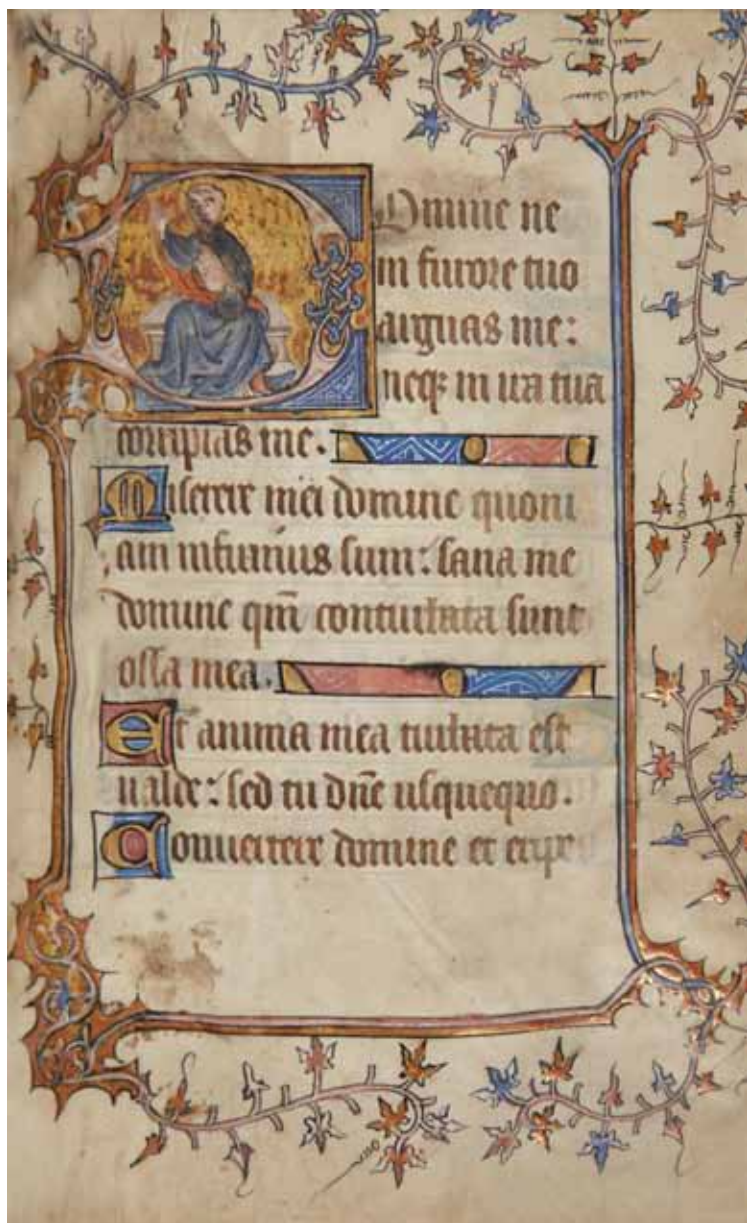 Domine ne
in furore tuo
arguas me:
neqꝫ in ira tua
corripias me.
Miserere mei domine quoni
am infirmus sum: sana me
domine qm̄ conturbata sunt
ossa mea.
Et anima mea turbata est
ualde: sed tu dn̄e usquequo.
Conuertere domine et eripe